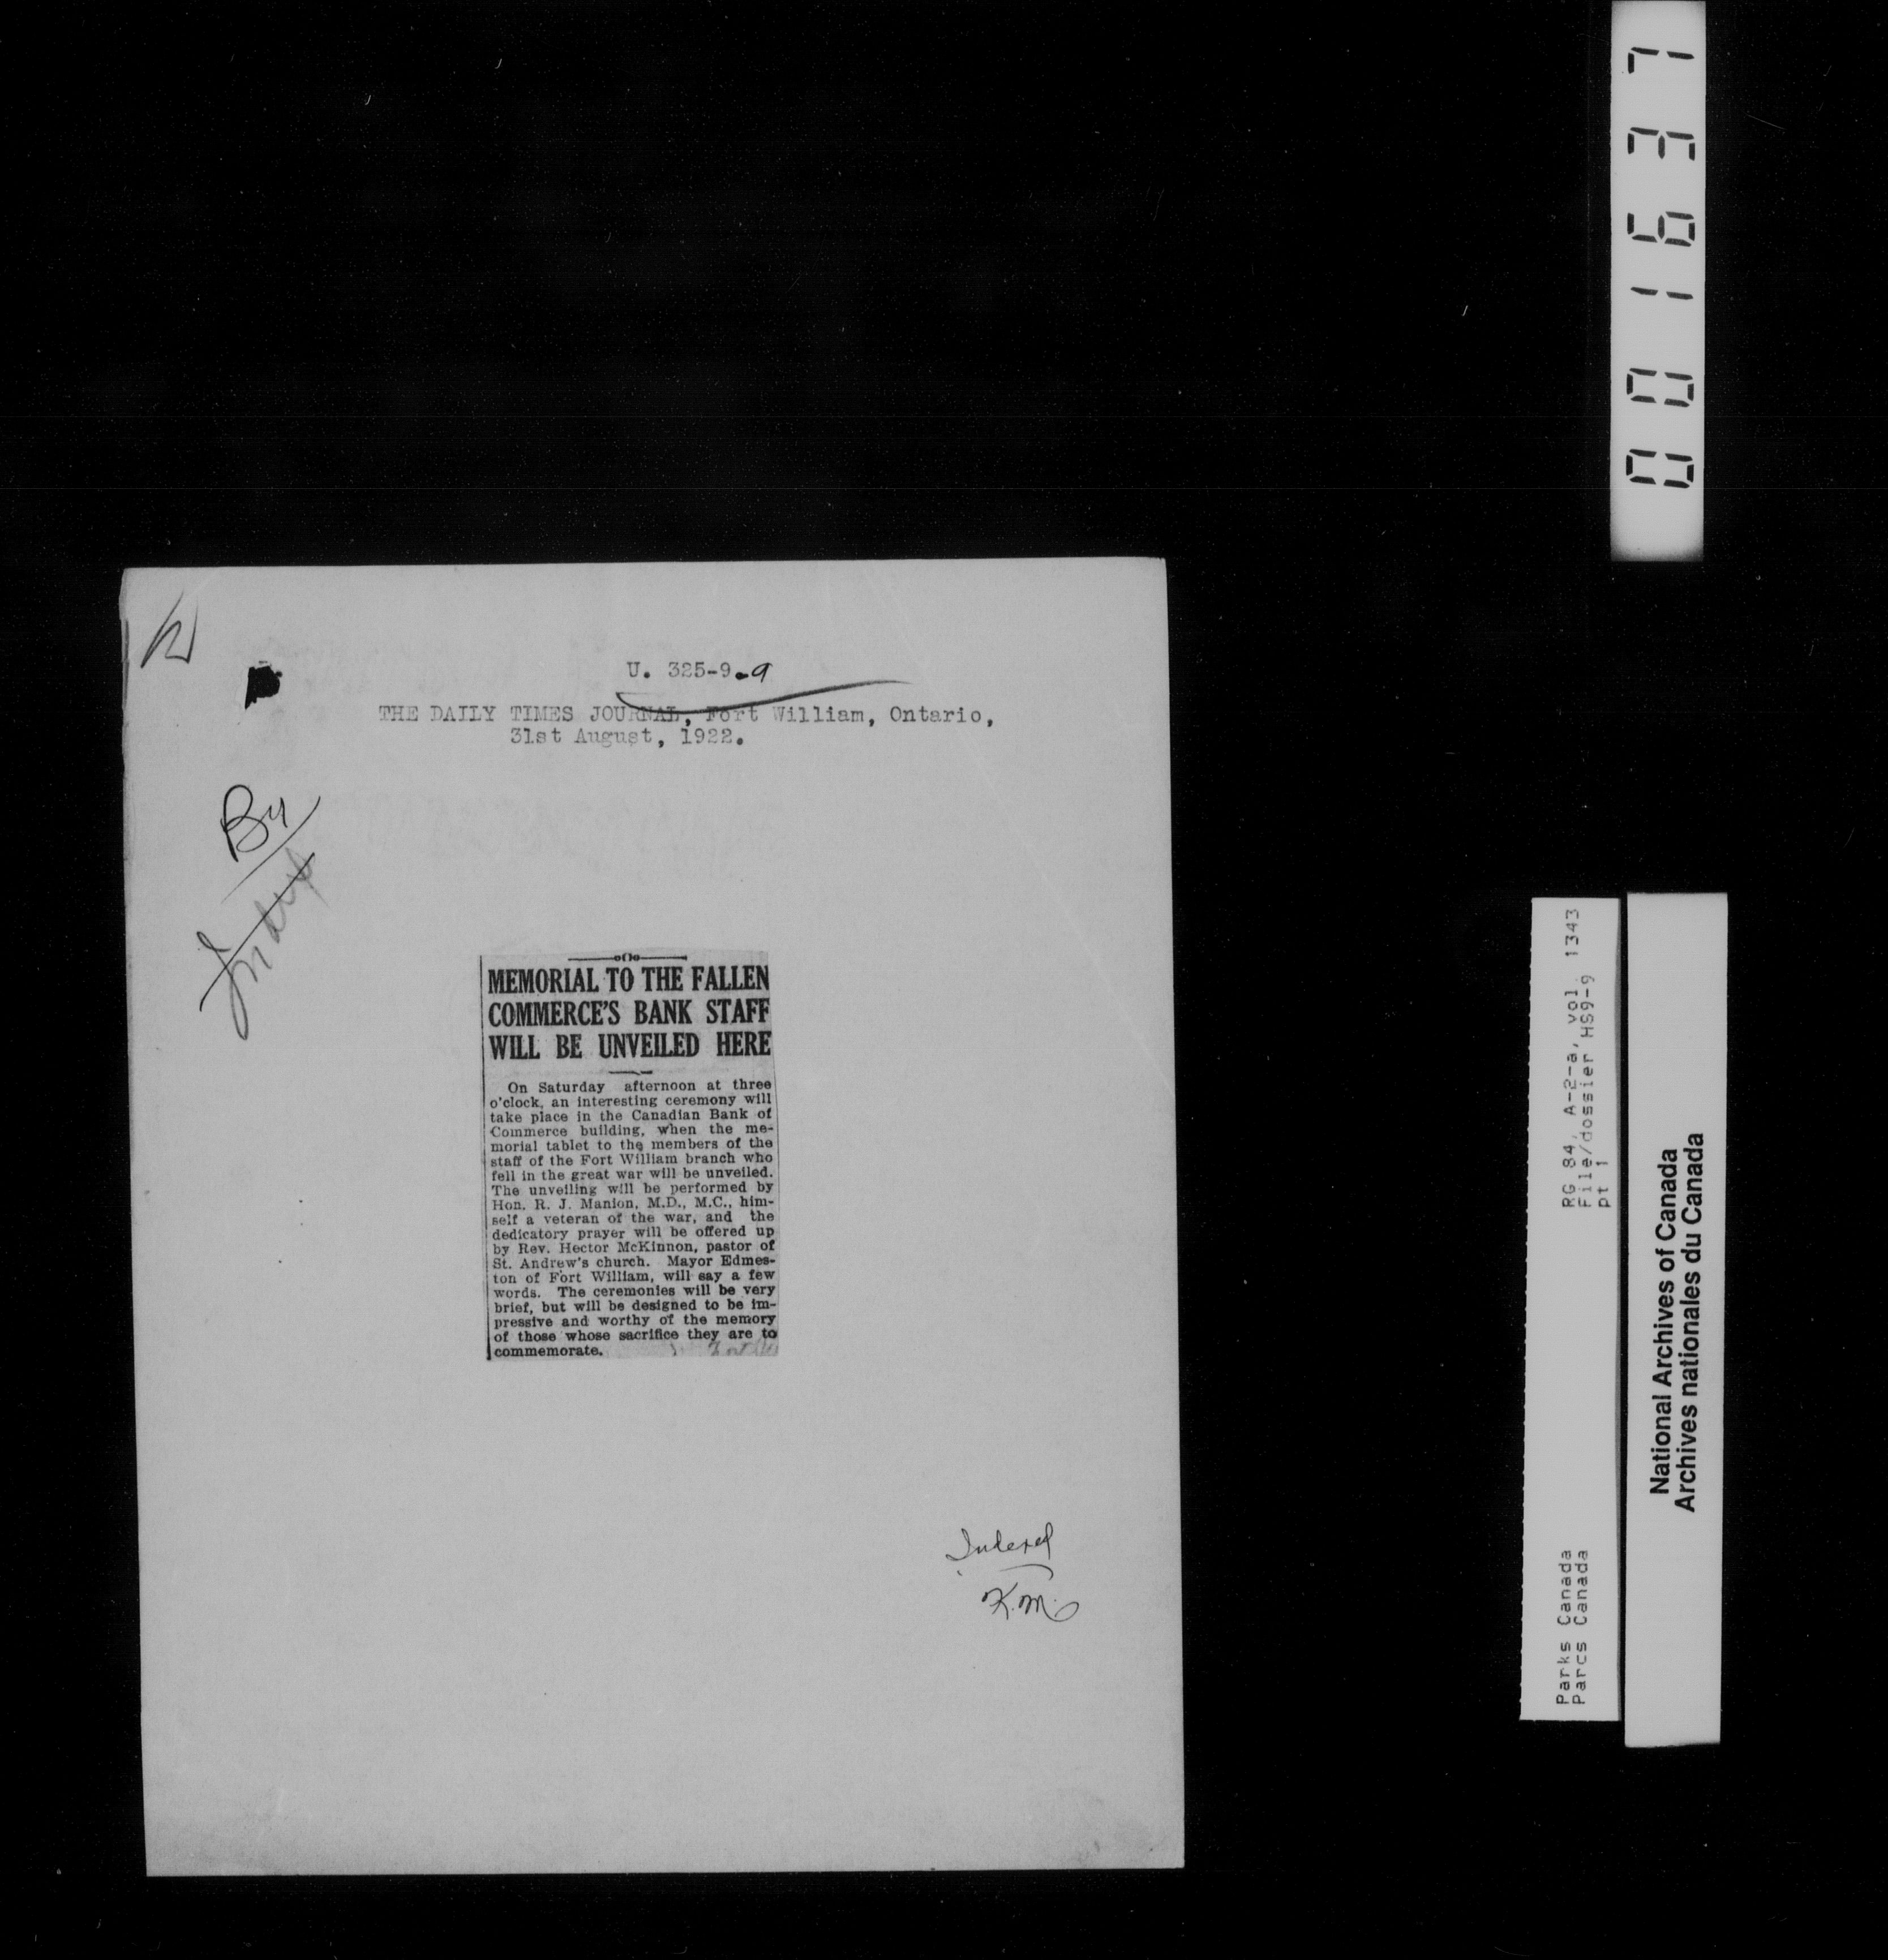 001637
U. 325-9-9
THE DAILY TIMES JOURNAL, Fort William, Ontario,
31st August, 1922.
By
Index
MEMORIAL TO THE FALLEN
COMMERCE'S BANK STAFF
WILL BE UNVEILED HERE
On Saturday afternoon at three
o'clock, an interesting ceremony will
take place in the Canadian Bank of
Commerce building, when the me-
morial tablet to the members of the
staff of the Fort William branch who
fell in the great war will be unveiled.
The unveiling will be performed by
Hon. R. J. Manion, M.D., M.C., him-
self a veteran of the war, and the
dedicatory prayer will be offered up
by Rev. Hector McKinnon, pastor of
St. Andrew's church. Mayor Edmes-
ton of Fort William, will say a few
words. The ceremonies will be very
brief, but will be designed to be im-
pressive and worthy of the memory
of those whose sacrifice they are to
commemorate.
Indexed
K.M.
Parks Canada
Parcs Canada
RG 84, A-2-a, vol. 1343
File/dossier HS9-9
pt 1
National Archives of Canada
Archives nationales du Canada